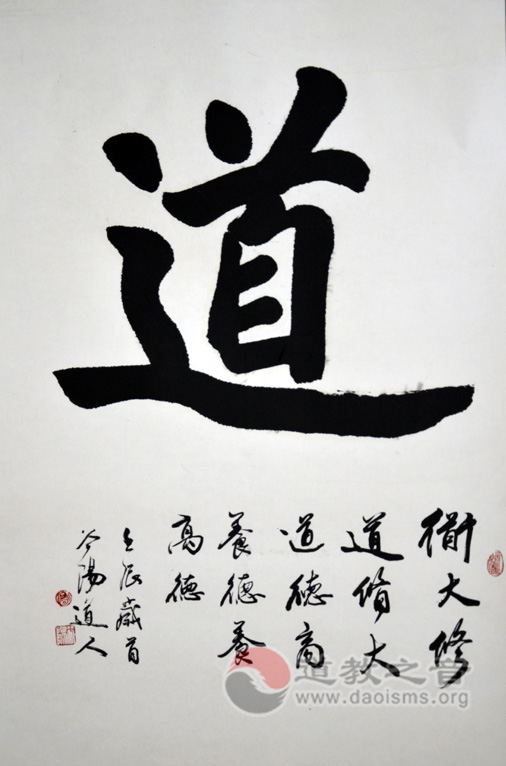 道
衜大修
道脩大
道德高
養德養
高德
壬辰歲首
陽道人
道教之音
www.daoisms.org